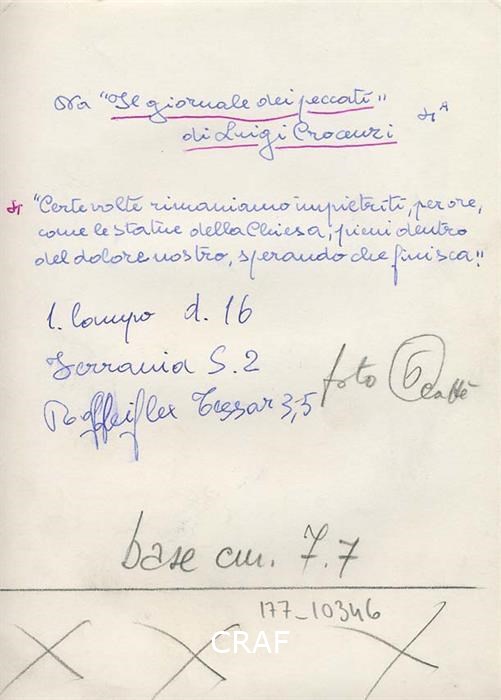 Da "Il giornale dei peccati"
di Luigi Crocenzi
"Certe volte rimaniamo impietriti, per ore,
come le statue della Chiesa, pieni dentro
del dolore nostro, sperando che finisca."
1. lampo d. 16
Ferrania S. 2
Rolleiflex Tessar 3,5
foto 6
base cm. 7.7
177-10346
CRAF